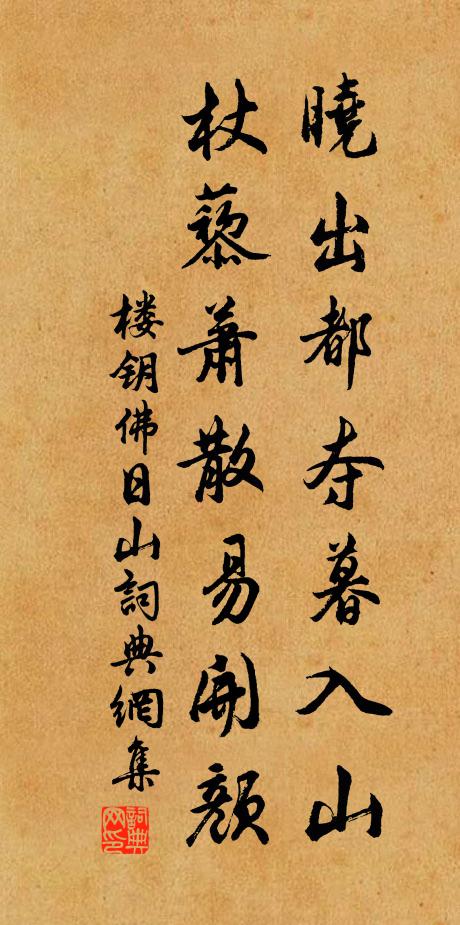 曉出都夺暮入山
杖藜蕭散易開顔
楼钥佛日山詞典網集
詞典
网印